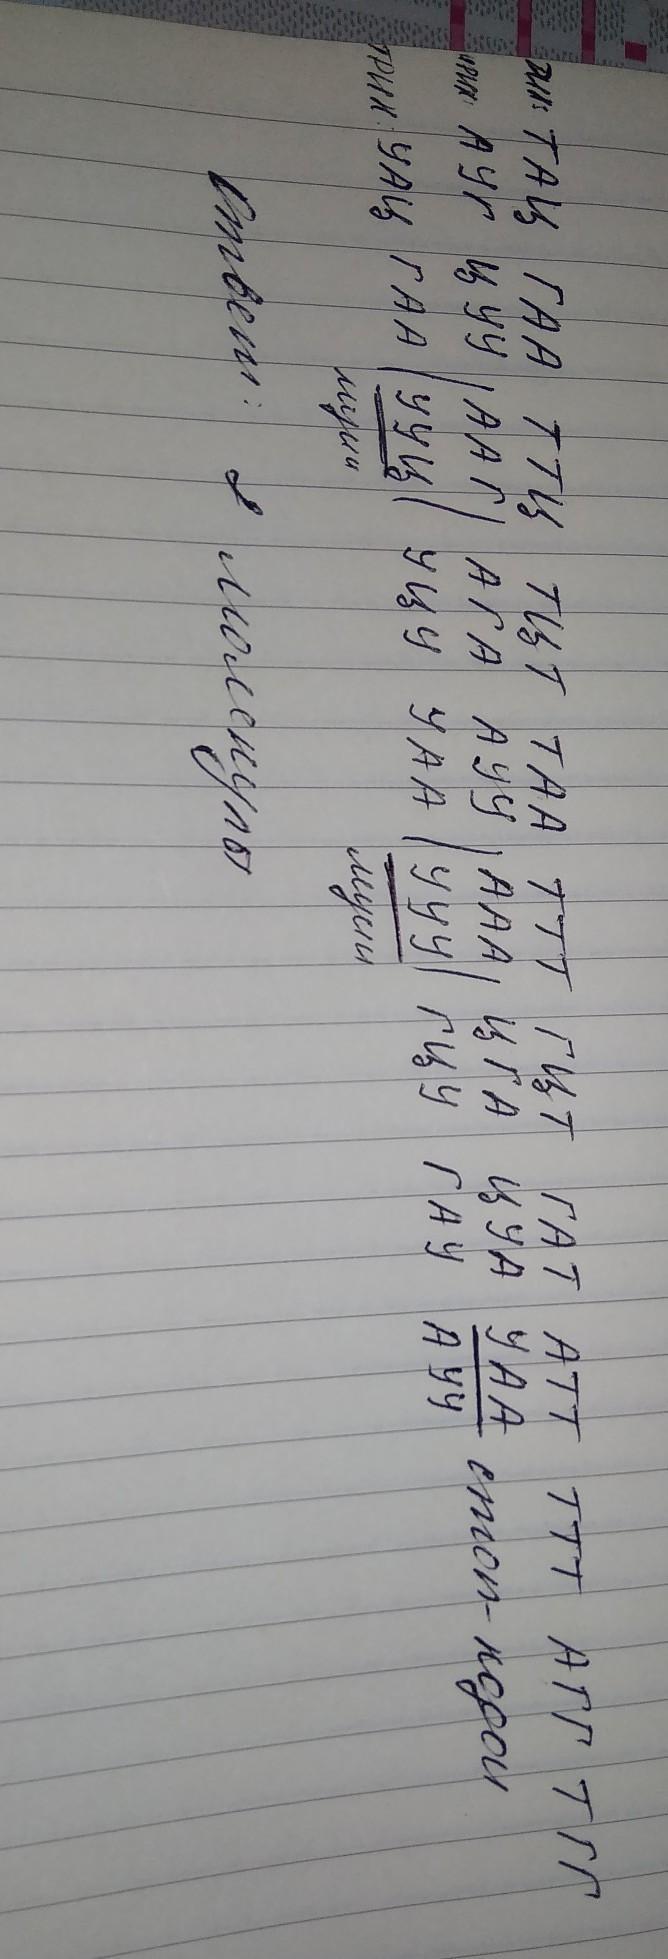 ДНК: ТАЦ ГАА ТТЦ ТЦТ ТАА ТТТ ГЦТ ГАТ АТТ ТТТ АГГ ТГГ
ИРНК: АУГ ЦУУ | ААГ | АГА АУУ | ААА | ЦГА ЦУА УАА стоп-кодон
ТРНК: УАЦ ГАА | УУЦ | УЦУ УАА | УУУ | ГЦУ ГАУ АУУ
лизин лизин
Ответ: 2 молекулы